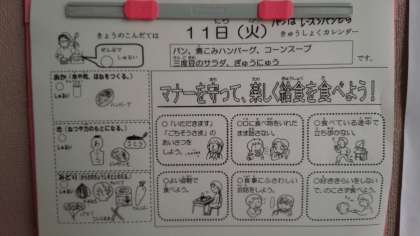 パンは レーズンパンです
11日(火)
きゅうしょくカレンダー
きょうのこんだては
ぜんぶで
しゅるい
パン、煮こみハンバーグ、コーンスープ
三度豆のサラダ、ぎゅうにゅう
です。
マナーを守って、楽しく給食を食べよう!
あか
しゅるい
ハンバーグ
き（ねつや力のもとになる。）
しゅるい
さとう
みどり
しゅるい
○「いただきます」
「ごちそうさま」の
あいさつを
しよう。
○口に食べ物をいれた
まま話さない。
○食べている途中で
立ち歩かない。
○よい姿勢で
食べよう。
○食事にふさわしい
会話をしよう。
○好ききらいをしない
で、のこさず食べよう。